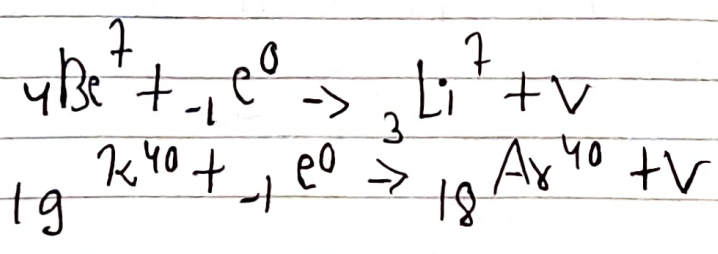 ₄Be⁷ + ₋₁e⁰ -> ₃Li⁷ + ν
₁₉K⁴⁰ + ₋₁e⁰ -> ₁₈Ar⁴⁰ + ν